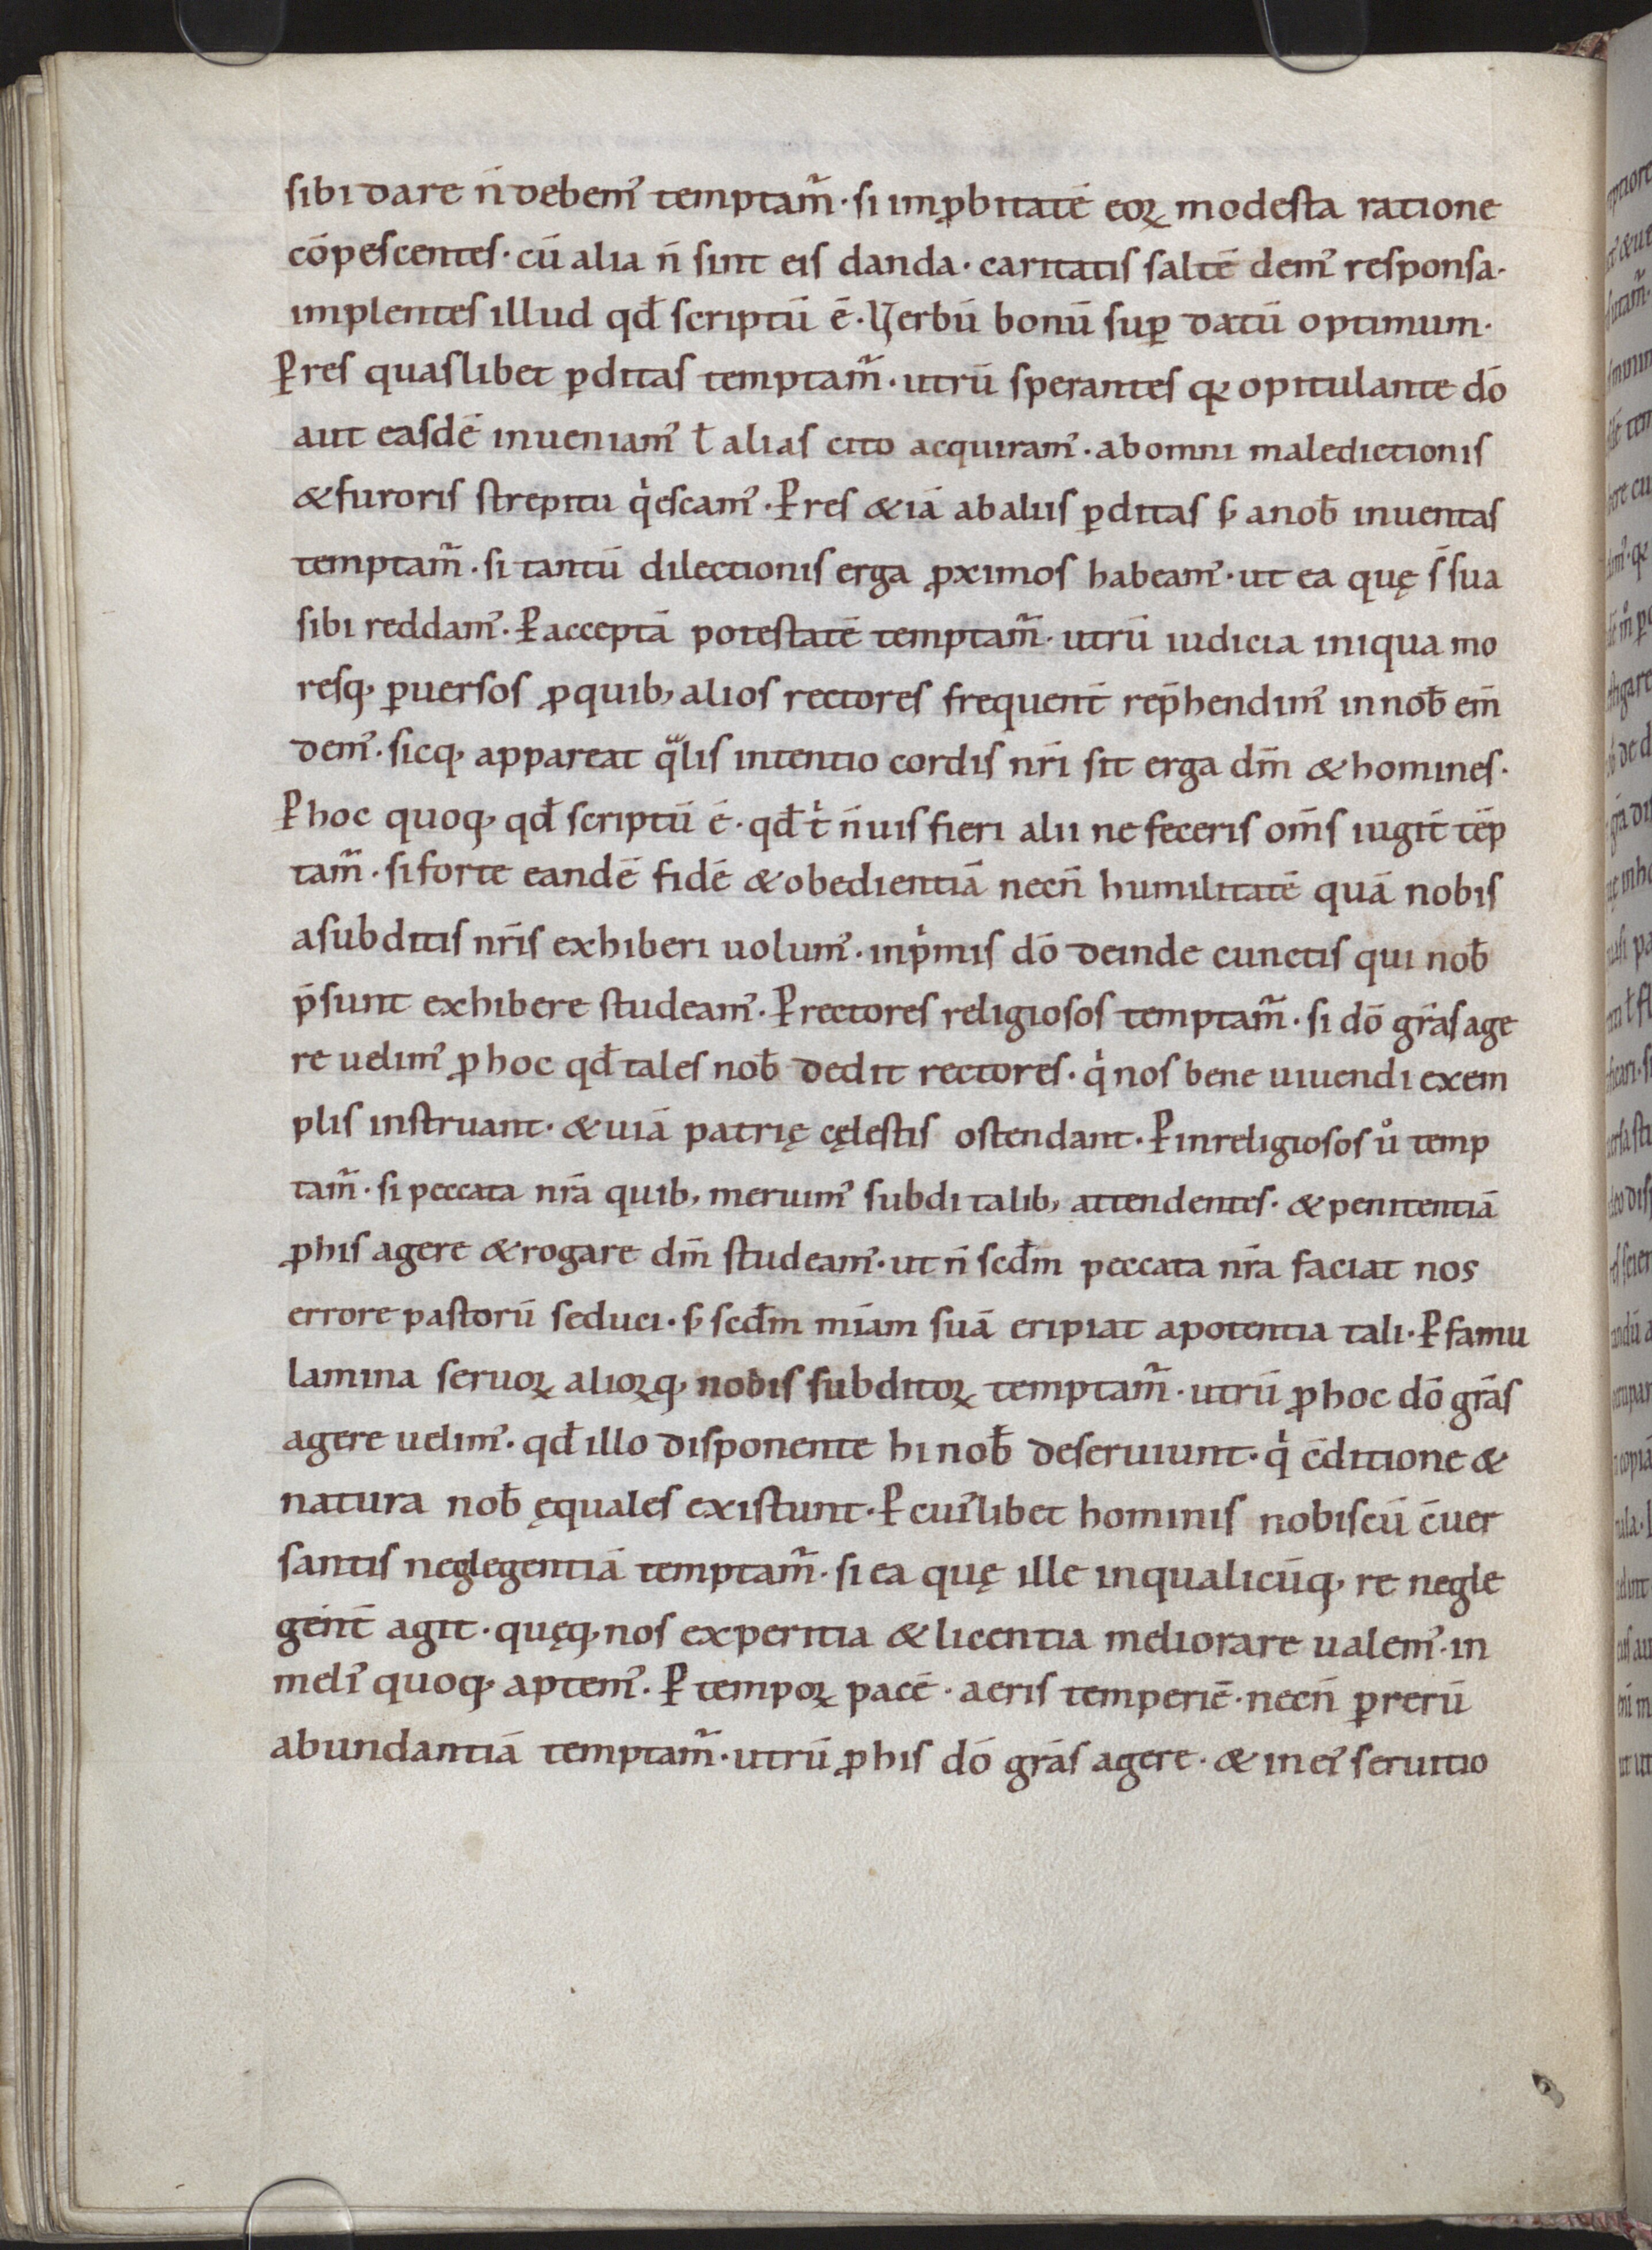 sibi dare n̄ debemꝰ temptam̃ · si imꝓbitatē eoꝝ modesta ratione
cōpescentes · cū alia n̄ sint eis danda · caritatis saltē demꝰ responsa ·
implentes illud qđ scriptū ē · Verbū bonū suꝑ datū optimum ·
Ꝑ res quaslibet ꝑditas temptam̃ · utrū sperantes qꝛ opitulante dō
aut easdē inueniamꝰ ł alias cito acquiramꝰ · ab omni maledictionis
& furoris strepitu qͥescamꝰ · Ꝑ res & iā ab aliis ꝑditas ſ; a nob̄ inuentas
temptam̃ · si tantū dilectionis erga ꝓximos habeamꝰ · ut ea quę s̄ sua
sibi reddamꝰ · Ꝑ acceptā potestatē temptam̃ · utrū iudicia iniqua mo
resq; ꝑuersos ꝓ quib; alios rectores frequent̄ rep̄hendimꝰ in nob̄ em̄
demꝰ · sicq; appareat qͣlis intentio cordis nr̄i sit erga dm̄ & homines ·
Ꝑ hoc quoq; qđ scriptū ē · qđ tͥ n̄ uis fieri alii ne feceris om̄s iugit̄ tēp
tam̃ · si forte eandē fidē & obedientiā necn̄ humilitatē quā nobis
a subditis nr̄is exhiberi uolumꝰ · in pͥmis dō deinde cunctis qui nob̄
p̄sunt exhibere studeamꝰ · Ꝑ rectores religiosos temptam̃ · si dō gr̄as age
re uelimꝰ ꝓ hoc qđ tales nob̄ dedit rectores · qͥ nos bene uiuendi exem
plis instruant · & uiā patrię cęlestis ostendant · Ꝑ inreligiosos uͦ temp
tam̃ · si peccata nr̄a quib; meruimꝰ subdi talib; attendentes · & penitentiā
ꝓ his agere & rogare dm̄ studeamꝰ · ut n̄ scđm peccata nr̄a faciat nos
errore pastorū seduci · ſ; scđm mīam suā eripiat a potentia tali · Ꝑ famu
lamina seruoꝝ alioꝝq; nobis subditoꝝ temptam̃ · utrū ꝓ hoc dō gr̄as
agere uelimꝰ · qđ illo disponente hi nob̄ deseruiunt · qͥ c̄ditione &
natura nob̄ ęquales existunt · Ꝑ cuiꝰlibet hominis nobiscū c̄uer
santis neglegentiā temptam̃ · si ea quę ille in qualicūq; re negle
gent̄ agit · quęq; nos ex peritia & licentia meliorare ualemꝰ · in
meliꝰ quoq; aptemꝰ · Ꝑ tempoꝝ pacē · aeris temperiē · necn̄ ꝑ rerū
abundantiā temptam̃ · utrū ꝓ his dō gr̄as agere · & in eiꝰ seruitio